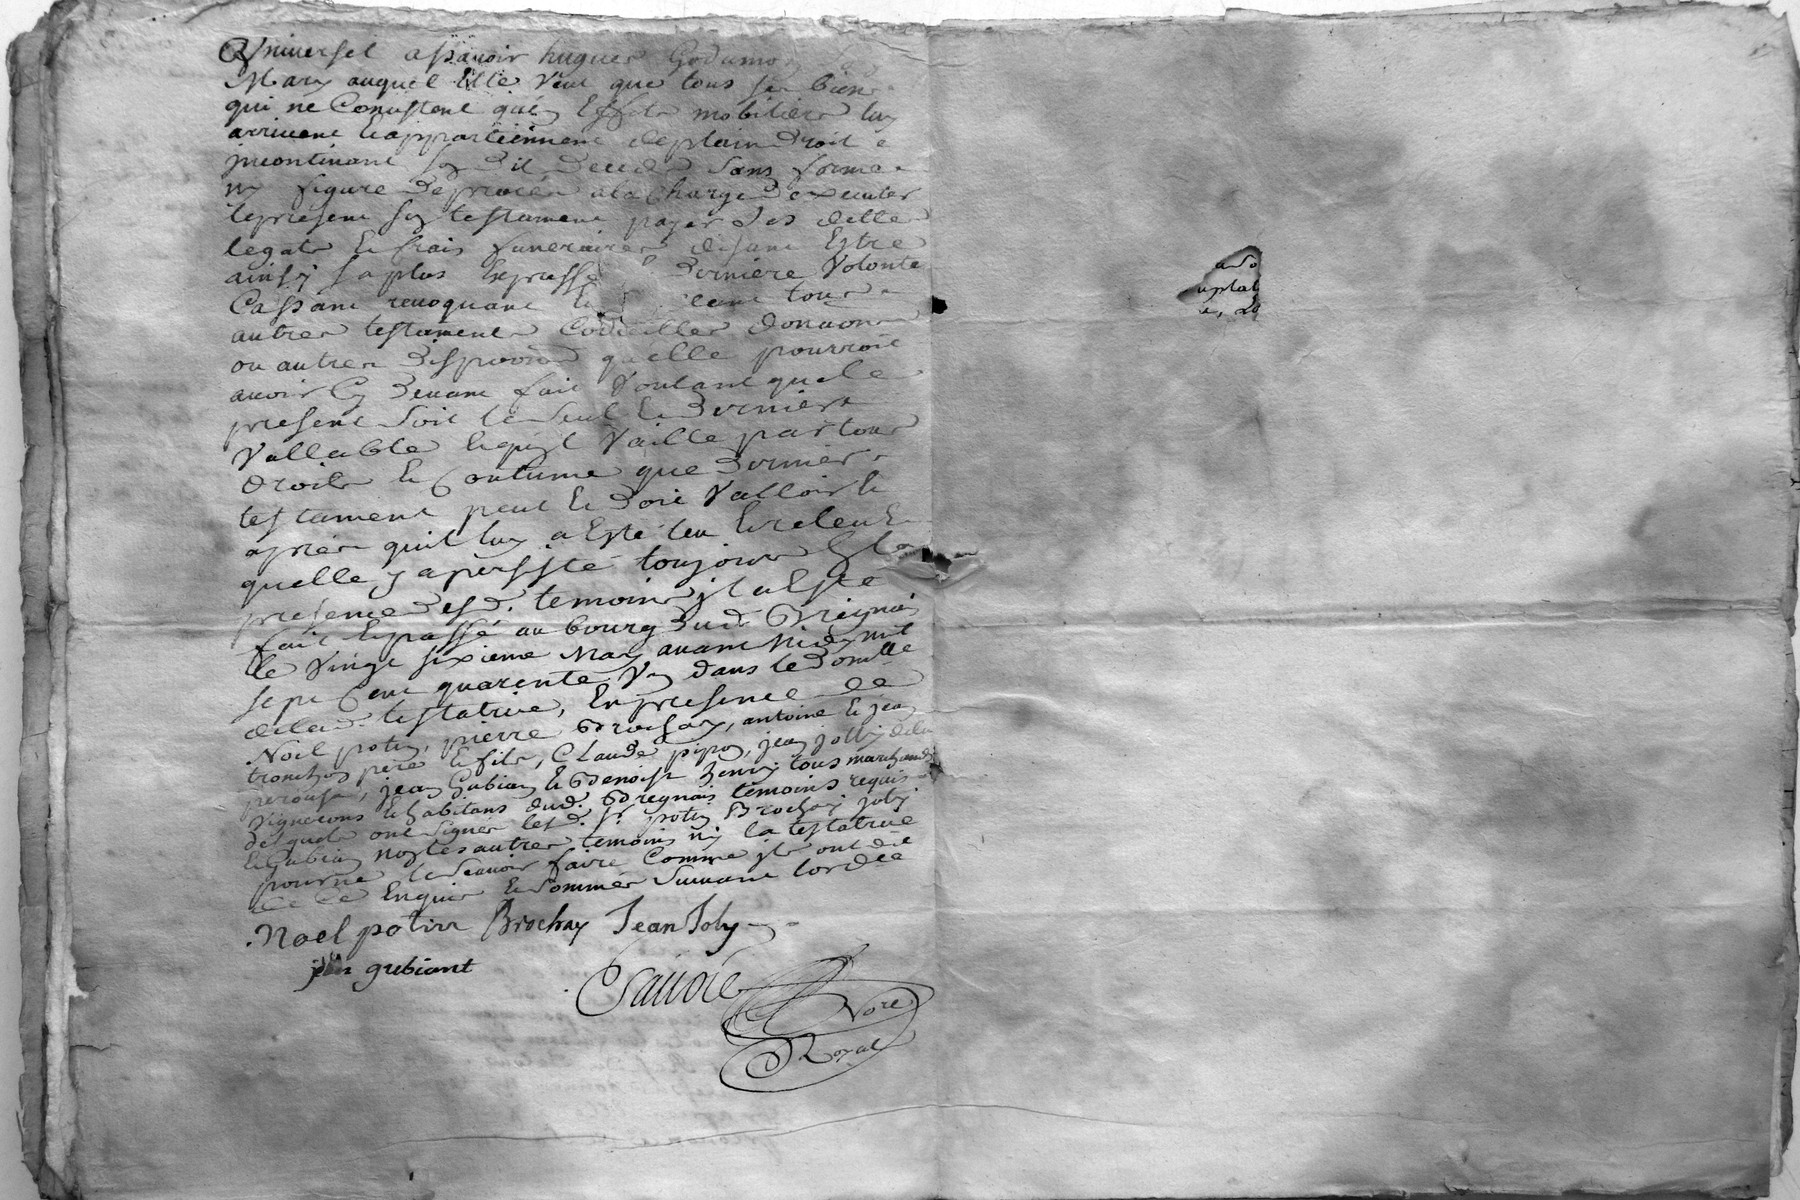 Universel asçavoir hugues Godumo
Mary auquel Elle Veut que tous ses biens
qui ne Consistent qu'en Effets mobiliers luy
arrivent & appartiennent de plain Droit &
incontinant son dit Deced Sans forme
ny figure De procés a la Charge D'executer
le present son testament payer Ses dettes
legats & frais funeraires disant Estre
ainsy sa plus Expresse Derniere Volonté
Cassant revoquant & tous
autres testaments Codicilles Donaons
ou autres Dispoons qu'elle pourroit
avoir Cy Devant fait Voulant que le
present Soit le Seul & Dernier
Vallable & qu'il Vaille par tous
Droits & Coutume que Dernier
testament peut & Doit Valloir &
aprés quil luy a Esté leu & releu &
quelle y a persisté toujours En la
presence Desd. temoins il a Esté
fait & passé au bourg Dud Brignais
le Vingt sixieme May avant Midy mil
sept Cent quarente Un dans le Domlle
de lad testatrice, En presence de
Noel potin, pierre Brochay, antoine & jean
tronchos pere & fils, Claude pipon, jean jolly dela
perouse, jean Gubian & Benoist henry tous marchands
Vignerons & habitans dud. Bregnais temoins requis
Desquels ont Signer lesd. Sr. potin Brochay joly
& Gubian non les autres temoins ny la testatrice
pour ne le Scavoir faire Comme ils ont dit
De Ce Enquis & Sommés Suivant lordce
Noel potin Brochay Jean Joly
jean gubiant
Savoie
Nore
Royal